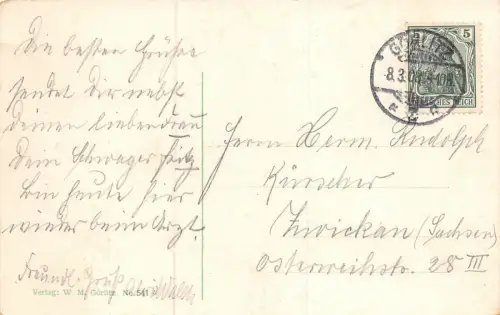 Die besten Grüße
sendet Dir nebst
Deinen lieben Frau
Dein Schwager Fritz
bin heute hier
wieder beim Arzt.
Freundl. Gruß
Verlag: W. M. Görlitz. No. 541
5
GÖRLITZ
8.3.09
REICH
Herrn Herm. Rudolph
Kürschner
Zwickau (Sachsen)
Osterweihstr. 28 III